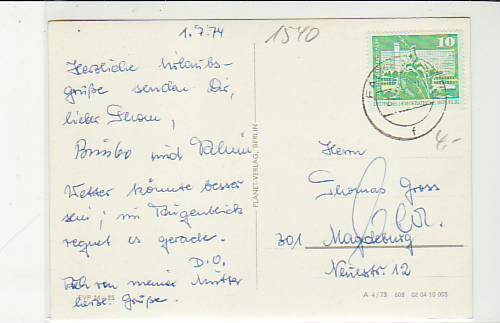 1.7.74
1540
Herzliche Urlaubs-
grüße senden Dir,
lieber Thom,
Bimbo und
Wetter könnte besser
sein; im Augenblick
regnet es gerade.
D.O.
Auch von meiner Mutter
herzl. Grüße.
PLANET-VERLAG, BERLIN
10
DEUTSCHE DEMOKRATISCHE REPUBLIK
f
Herrn
Thomas Gross
301 Magdeburg
Neuestr 12
A 4/73 608 02 04 10 003